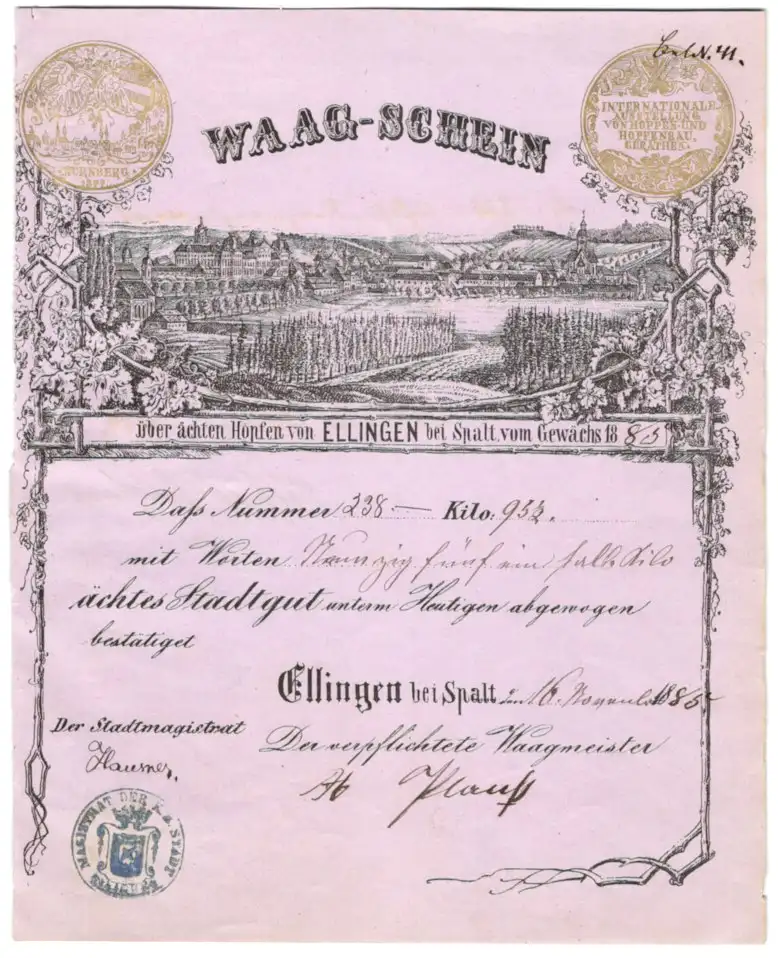 NÜRNBERG
1877
INTERNATIONALE
AUSSTELLUNG
VON HOPFEN UND
HOPFENBAU
GERÄTHEN.
WAAG-SCHEIN
über ächten Hopfen von ELLINGEN bei Spalt, vom Gewächs 1885
Daß Nummer 238 — Kilo: 95½.
mit Worten Neunzig fünf ein halb Kilo
ächtes Stadtgut unterm Heutigen abgewogen
bestätiget
Ellingen bei Spalt 16. Novemb. 1885
Der Stadtmagistrat
Der verpflichtete Waagmeister
MAGISTRAT DER K. B. STADT
ELLINGEN